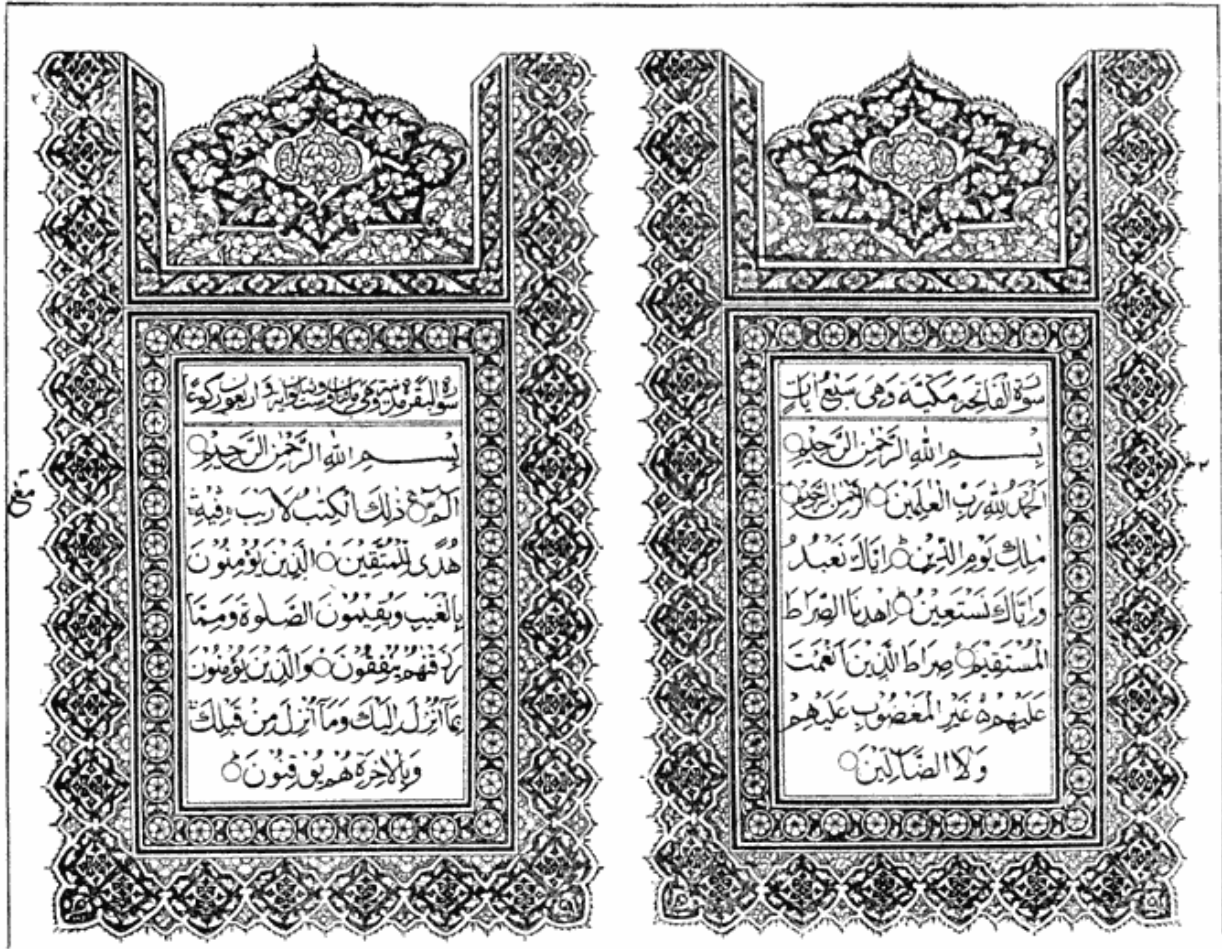 سورة الفاتحة مكية وهى سبع ايات
بِسْمِ اللهِ الرَّحْمٰنِ الرَّحِيْمِ
الْحَمْدُ لِلّٰهِ رَبِّ الْعٰلَمِيْنَ الرَّحْمٰنِ الرَّحِيْمِ
مٰلِكِ يَوْمِ الدِّيْنِ ط اِيَّاكَ نَعْبُدُ
وَاِيَّاكَ نَسْتَعِيْنُ ط اِهْدِنَا الصِّرَاطَ
الْمُسْتَقِيْمَ صِرَاطَ الَّذِيْنَ اَنْعَمْتَ
عَلَيْهِمْ غَيْرِ الْمَغْضُوْبِ عَلَيْهِمْ
وَلَا الضَّآلِّيْنَ
سورة البقرة
بِسْمِ اللهِ الرَّحْمٰنِ الرَّحِيْمِ
الٓمّٓ ذٰلِكَ الْكِتٰبُ لَا رَيْبَ فِيْهِ
هُدًى لِّلْمُتَّقِيْنَ الَّذِيْنَ يُؤْمِنُوْنَ
بِالْغَيْبِ وَيُقِيْمُوْنَ الصَّلٰوةَ وَمِمَّا
رَزَقْنٰهُمْ يُنْفِقُوْنَ وَالَّذِيْنَ يُؤْمِنُوْنَ
بِمَآ اُنْزِلَ اِلَيْكَ وَمَآ اُنْزِلَ مِنْ قَبْلِكَ
وَبِالْاٰخِرَةِ هُمْ يُوْقِنُوْنَ ط